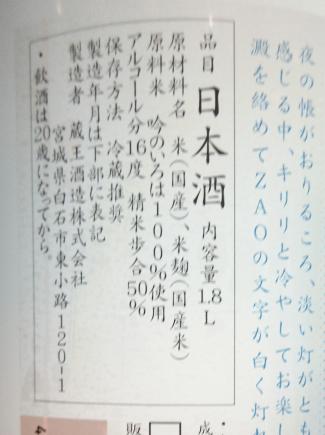 夜の帳がおりるころ、淡い灯がとも
感じる中、キリリと冷やしてお楽し
澱を絡めてZAOの文字が白く灯
品目 日本酒 内容量1.8L
原材料名 米(国産)、米麹(国産米)
原料米 吟のいろは100%使用
アルコール分16度 精米歩合50%
保存方法 冷蔵推奨
製造年月は下部に表記
製造者 蔵王酒造株式会社
宮城県白石市東小路120-1
・飲酒は20歳になってから。
成
販